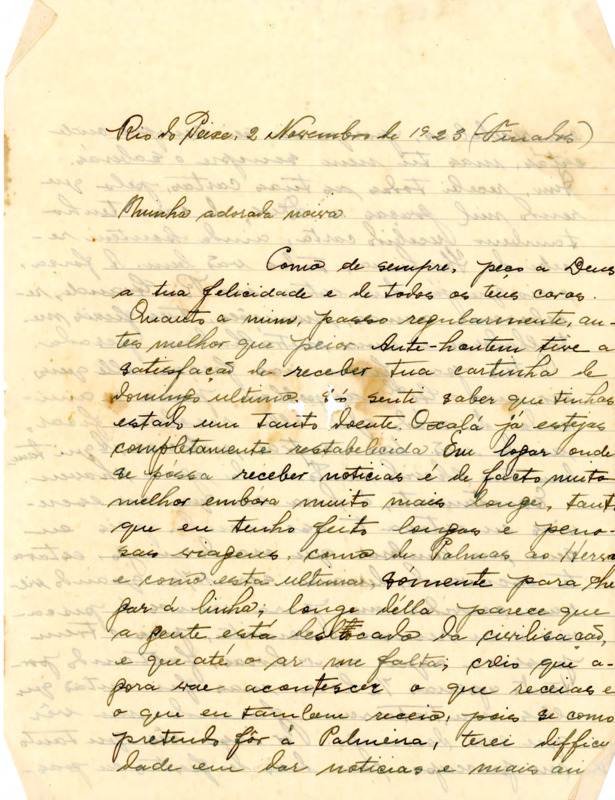 Rio do Peixe, 2 Novembro de 1923 (Finados)
Minha adorada noiva
Como de sempre, peço a Deus
a tua felicidade e de todos os teus caros.
Quanto a mim, passo regularmente, an-
tes melhor que peior. Ante-hontem tive a
satisfação de receber tua cartinha de
domingo ultimo, só senti saber que tinhas
estado um tanto doente. Oxalá já estejas
completamente restabelecida. Em logar onde
se possa receber noticias é de facto muito
melhor embóra muito mais longe, tanto
que eu tenho feito longas e peno-
sas viagens, como de Palmas ao Herval
e como esta ultima, sómente para che
gar á linha; longe délla parece que
a gente está da civilisação,
e que até o ar me falta; creio que a-
gora vae acontescer o que receias e
o que eu tambem receio, pois se como
pretendo fôr á Palmeira, terei difficul
dade em dar noticias e mais ain